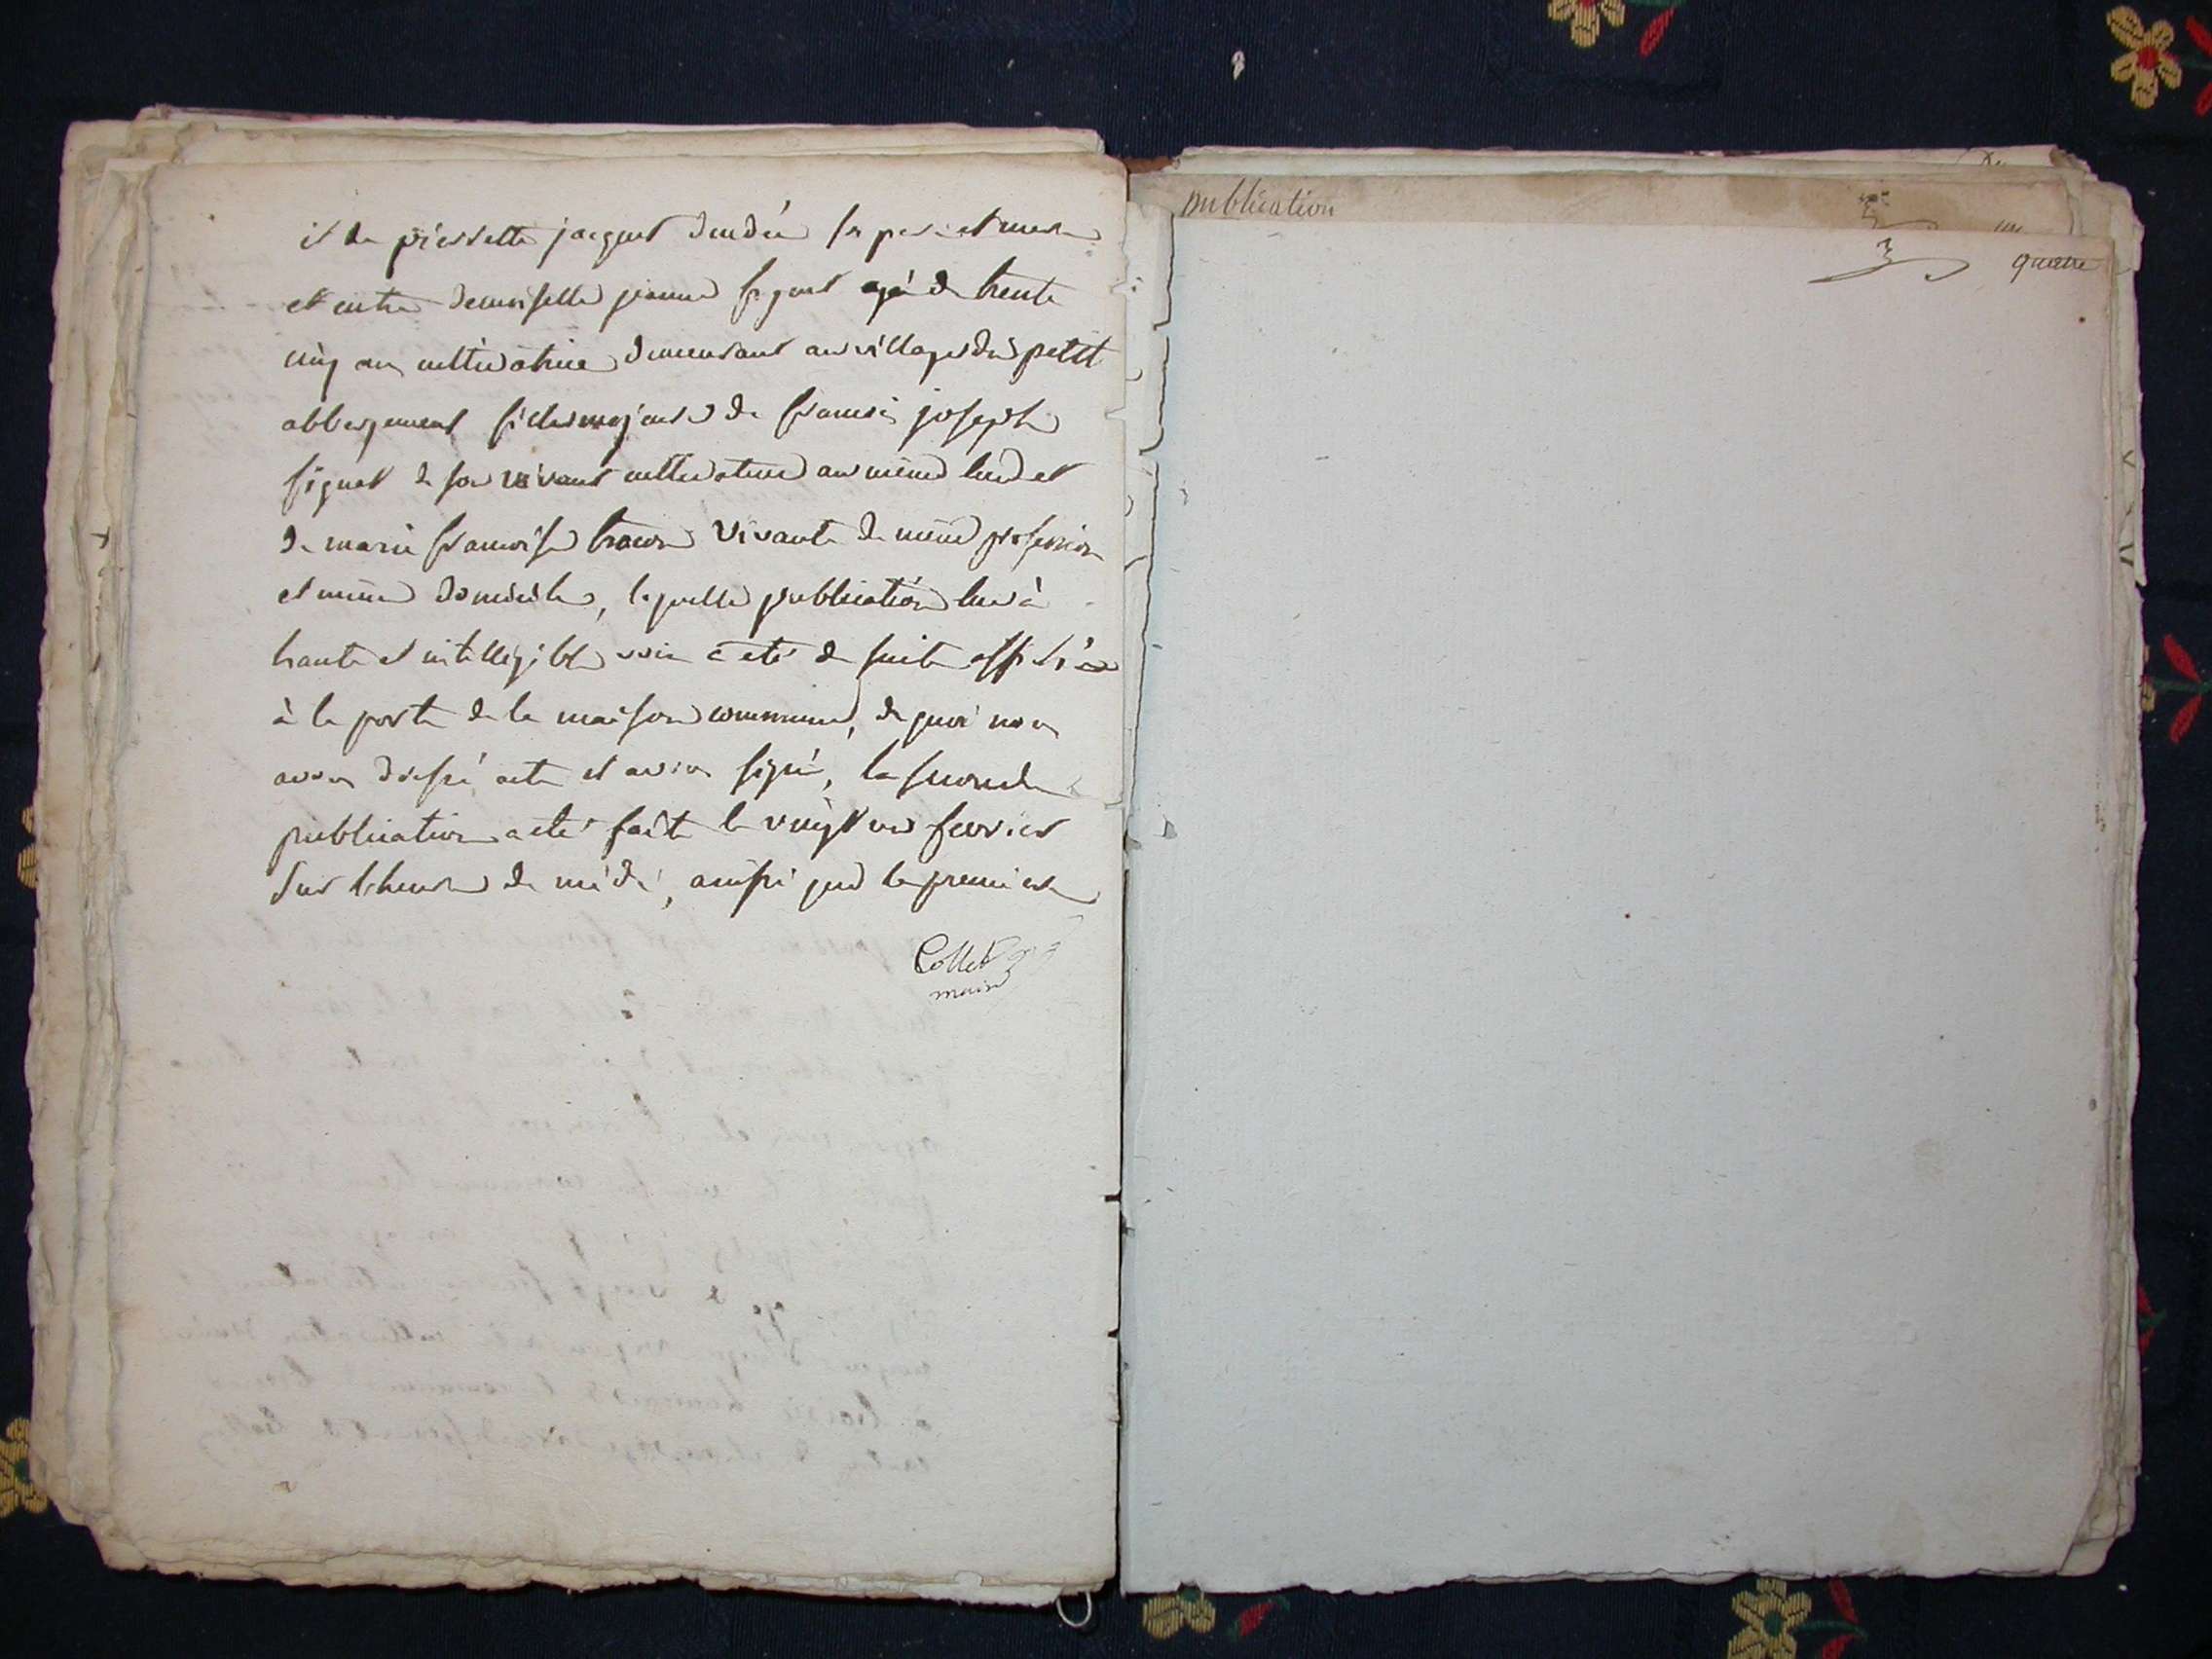 et de pierrette jacquet decedée ses pere et mere
et entre demoiselle jeanne signet agé de trente
cinq ans cultivatrice demeurant au village du petit
abbergement fille majeure de francois joseph
signet de son vivant cultivateur au même lieu et
de marie francoise vivante de même profession
et même domicile, laquelle publication lue à
haute et intelligible voix a eté de suite affichée
à la porte de la maison commune, de quoi nous
avons dressé acte et avons signé, la seconde
publication a eté faite le vingt un fevrier
sur lheure de midi, ainsi que la premiere
Collet
maire
publication
3
quatre